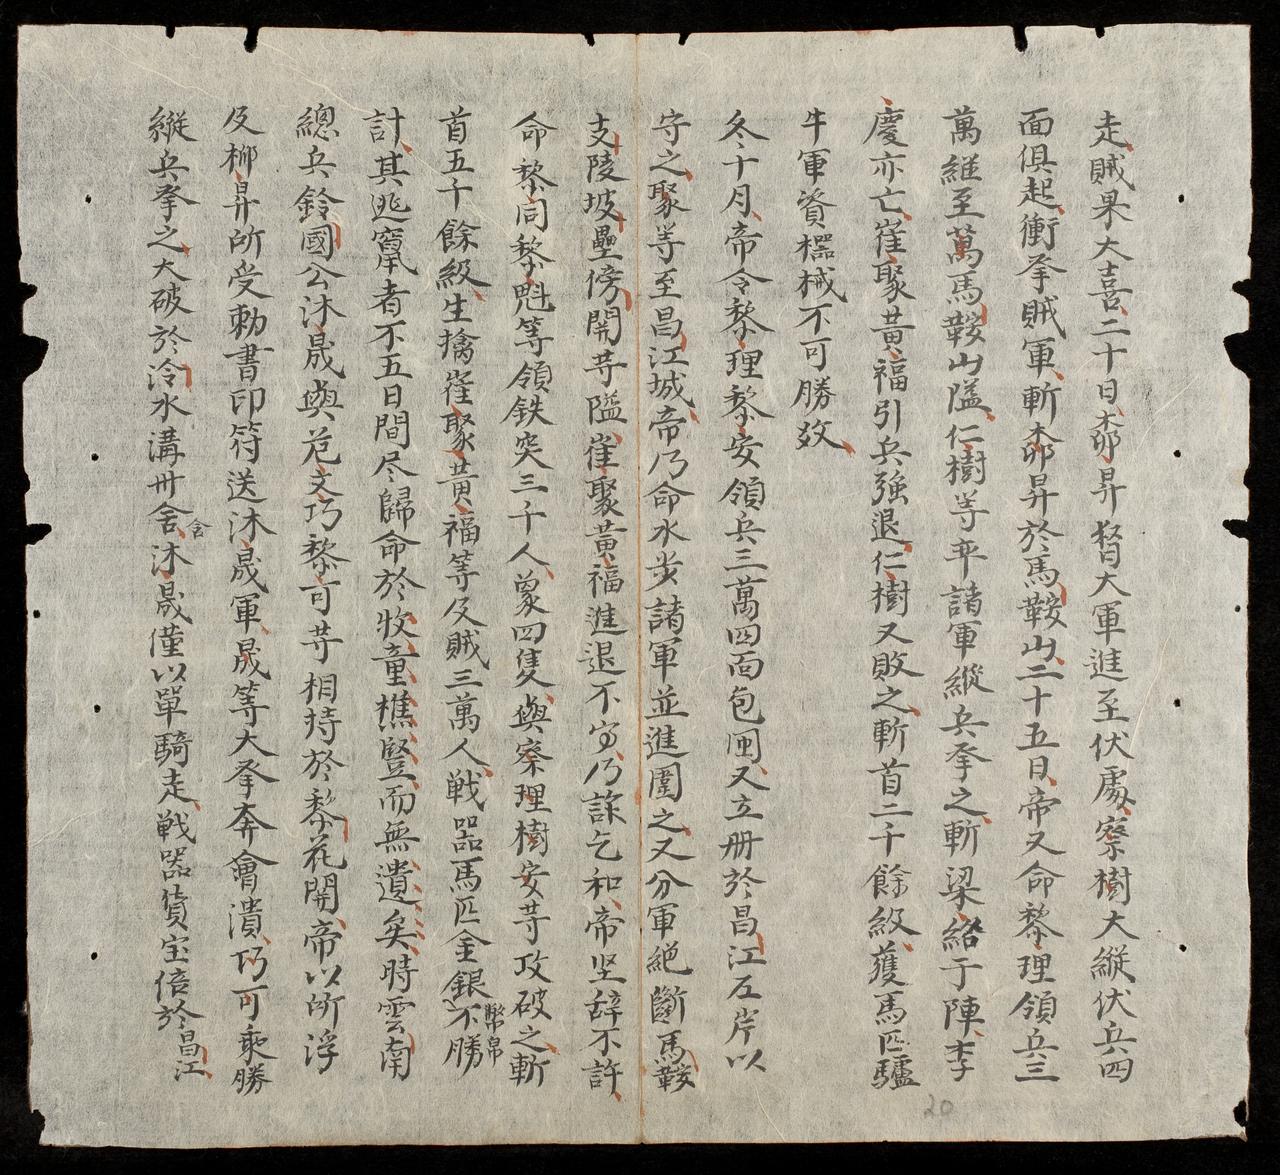 走賊果大喜二十日柳昇督大軍進至伏處察樹大縱伏兵四
面俱起衝擊賊軍斬柳昇於馬鞍山二十五日帝又命黎理領兵三
萬継至萬馬鞍山隘仁樹等卒諸軍縱兵擊之斬梁銘于陣李
慶亦亡崔聚黃福引兵強退仁樹又敗之斬首二千餘級獲馬匹驢
牛軍資器械不可勝数
冬十月帝令黎理黎安領兵三萬四面包圍又立册於昌江左岸以
守之聚等至昌江城帝乃命水步諸軍並進圍之又分軍絕斷馬鞍
支陵坡壘傍開等隘崔聚黃福進退不守乃詐乞和帝坚辞不許
命黎同黎魁等領鉄突三千人象四隻與察理樹安等攻破之斬
首五千餘級生擒崔聚黃福等及賊三萬人戦器馬匹金銀幣帛不勝
計其逃竄者不五日間尽歸命於牧童樵竪而無遺矣時雲南
總兵鈴國公沐晟與范文巧黎可等相持於黎花關帝以所浮
及柳昇所受勅書印符送沐晟軍晟等大擊奔會潰巧可乘勝
縱兵擊之大破於泠水溝冊舍舍沐晟僅以單騎走戦器貨宝倍於昌江
20